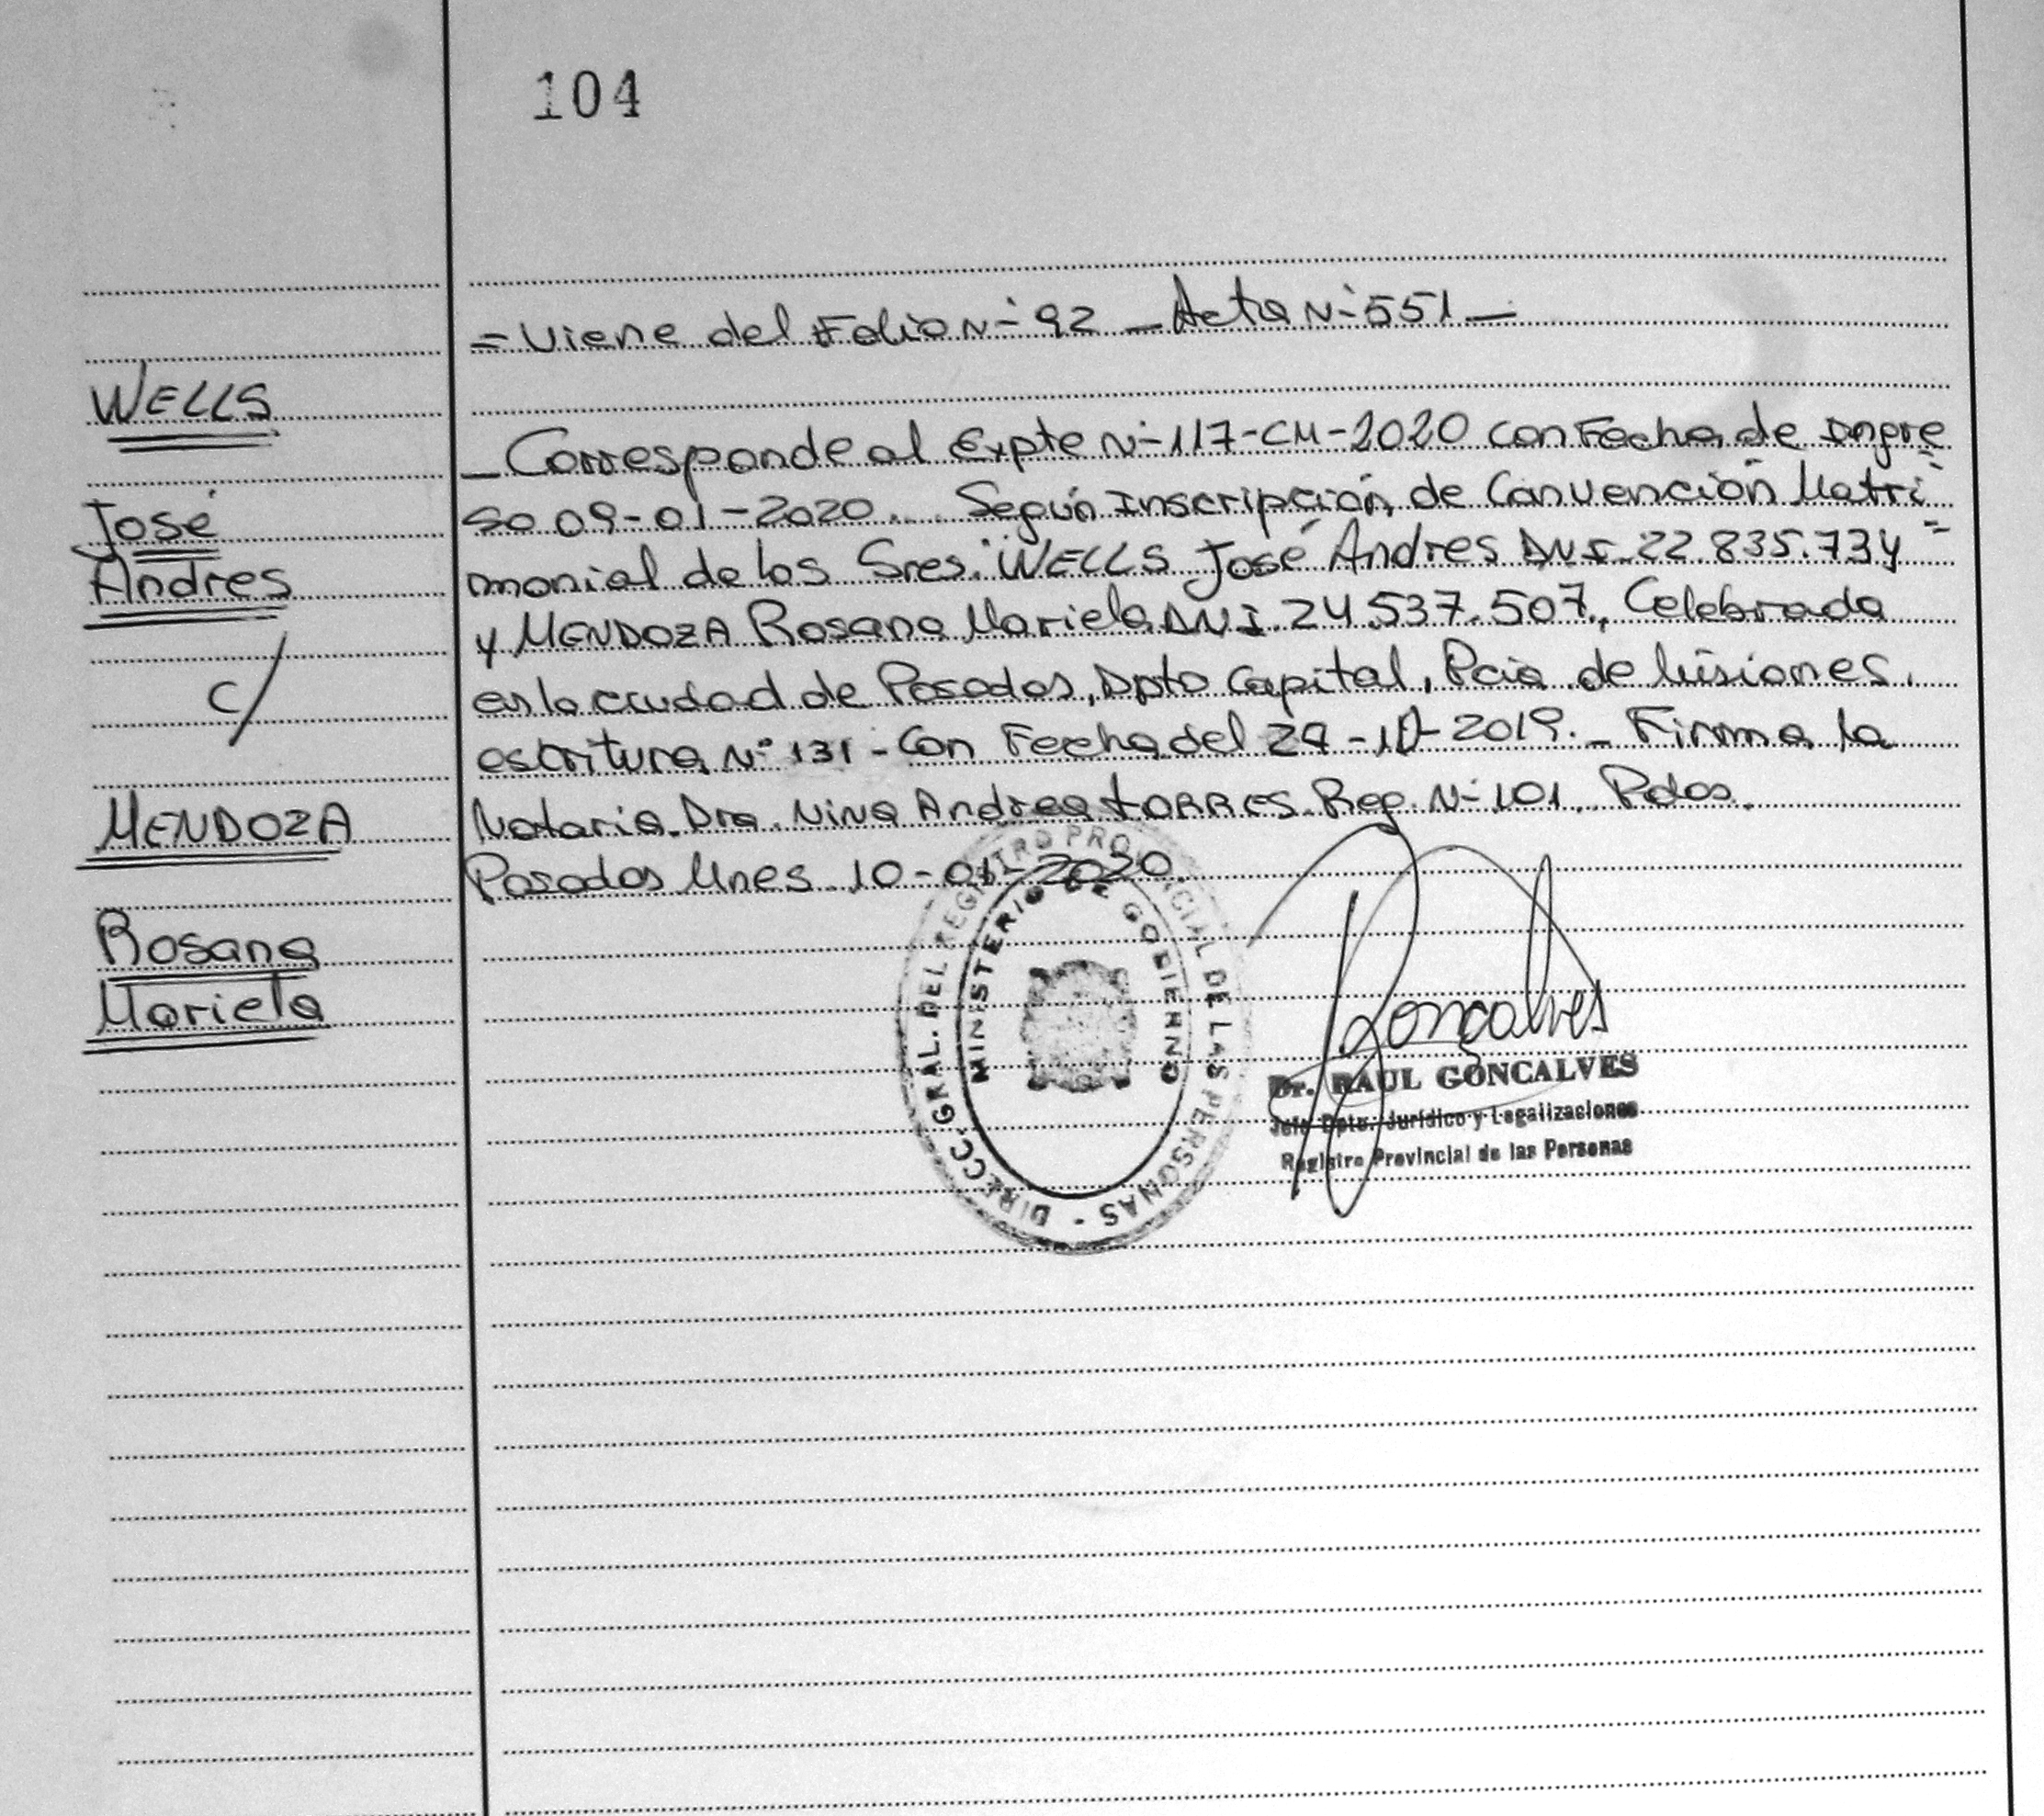 104
= Viene del Folio N- 92 _ Acta N- 551 _
WELLS
José
Andres
c/
MENDOZA
Rosana
Mariela
_ Corresponde al Expte N- 117-CM-2020 con Fecha de Ingre
so 09-01-2020. Según Inscripción de Convención Matri=
monial de los Sres. WELLS José Andres DNI. 22.835.734 =
y MENDOZA Rosana Mariela DNI. 24.537.507., Celebrada
en la ciudad de Posadas, Dpto Capital, Pcia de Misiones.
escritura N° 131 - Con Fecha del 29 -10-2019. _ Firma la
Notaria Dra. Nina Andrea TORRES Reg. N- 101 Pdas.
Posadas Mnes 10-01-2020.
DIRECC. GRAL. DEL REGISTRO PROVINCIAL DE LAS PERSONAS -
MINISTERIO DE GOBIERNO
Goncalves
Dr. RAUL GONCALVES
Jefe Dpto. Jurídico y Legalizaciones
Registro Provincial de las Personas